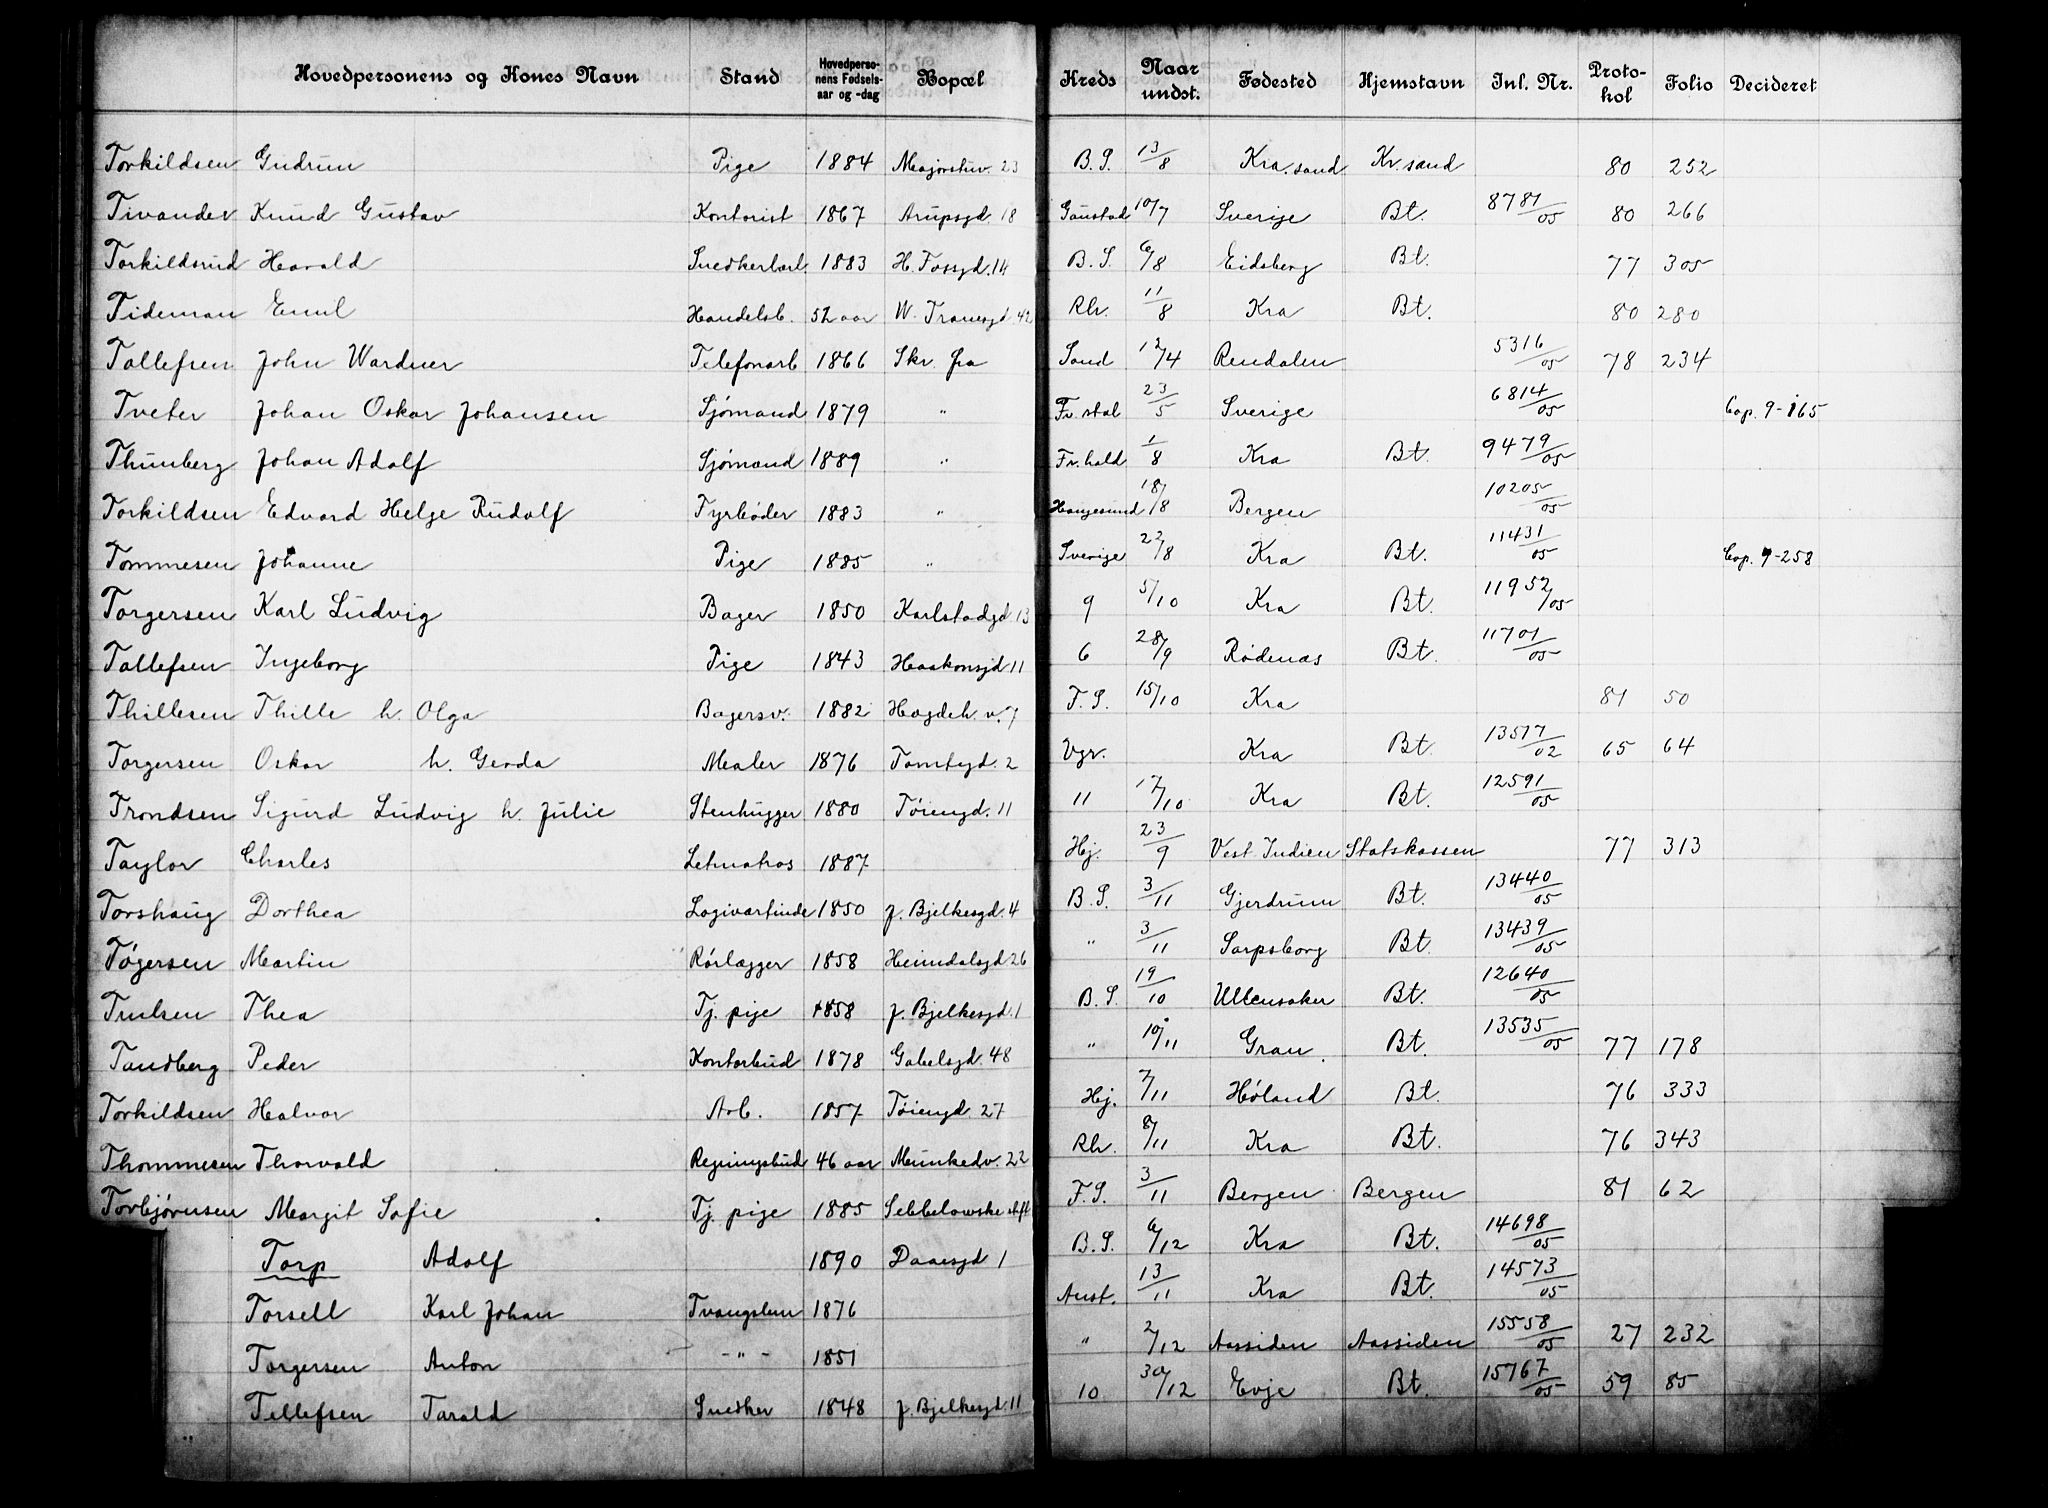 Hovedpersonens og Kones Navn Stand Hovedperso-nens Fødsels-aar og -dag Bopæl Kreds Naar undst. Fødested Hjemstavn Inl. Nr. Proto-kol Folio Decideret
Torkildsen Gudrun Pige 1884 Majorstuv. 23 B. S. 13/8 Kra.sand Kr. sand 80 252
Tivander Knud Gustav Kontorist 1867 Arupsgd 18 Gaustad 10/7 Sverige Bt. 8781/05 80 266
Torkildsrud Harald Snedkerlærl. 1883 H. Tossgd. 14 B. S. 6/8 Eidsberg Bt. 77 305
Tideman Emil Handelsb. 52 aar W. Tranesgd 42 Rh. 11/8 Kra Bt. 80 280
Tallefsen John Wardner Telefonarb 1866 Skr. fra Sand 12/4 Rendalen 5316/05 78 234
Tveter Johan Oskar Johansen Sjømand 1879 " Fr. stad 23/5 Sverige 6814/05 Cop. 9-165
Thunberg Johan Adolf Sjømand 1889 " Fr. hald 1/8 Kra Bt. 9479/05
Torkildsen Edvard Helge Rudolf Fyrbøder 1883 " Haugesund 18/8 Bergen 10205/05
Tommesen Johanne Pige 1885 " Sverige 22/8 Kra Bt. 11431/05 Cop. 9-258
Torgersen Karl Ludvig Bager 1850 Karlstadgd 13 9 5/10 Kra Bt. 11952/05
Tallefsen Ingeborg Pige 1843 Haakonsgd 11 6 28/9 Rødenæs Bt. 11701/05
Thillesen Thille h. Olga Bagersv. 1882 Hagdeh. v. 7 F. S. 15/10 Kra 81 50
Torgersen Oskar h. Gerda Maler 1876 Tomtegd. 2 Vgr. Kra Bt. 13577/02 65 64
Trondsen Sigurd Ludvig h. Julie Stenhugger 1880 Tøiengd. 11 11 17/10 Kra Bt. 12591/05
Taylor Charles Letmatros 1887 Hj. 23/9 Vest Indien Statskassen 77 313
Torshaug Dorthea Logivertinde 1850 J. Bjelkesgd. 4 B. S. 3/11 Gjerdrum Bt. 13440/05
Tøgersen Martin Rørlægger 1858 Heimdalsgd 26 " 3/11 Sarpsborg Bt. 13439/05
Trulsen Thea Tj. pige 1858 J. Bjelkesgd. 1 B. S. 19/10 Ullensaker Bt. 12640/05
Tandberg Peder Kontorbud 1878 Gabelsgd. 48 " 10/11 Gran Bt. 13535/05 77 178
Torkildsen Halvor Arb. 1857 Tøiengd 27 Hj. 7/11 Høland Bt. 76 333
Thommesen Thorvald Regningsbud 46 aar Munkedv. 22 Rh. 8/11 Kra Bt. 76 343
Torbjørnsen Margit Sofie Tj. pige 1885 Sebbelowske stift F. S. 3/11 Bergen Bergen 81 62
Torp Adolf 1890 Daaesgd 1 B. S. 6/12 Kra Bt. 14698/05
Torsell Karl Johan Tvangslem 1876 Anst. 13/11 Kra Bt. 14573/05
Torgersen Anton - " - 1851 " 2/12 Aassiden Aassiden 15558/05 27 232
Tellefsen Tarald Snedker 1848 J. Bjelkesgd. 11 10 30/12 Evje Bt. 15767/05 59 85